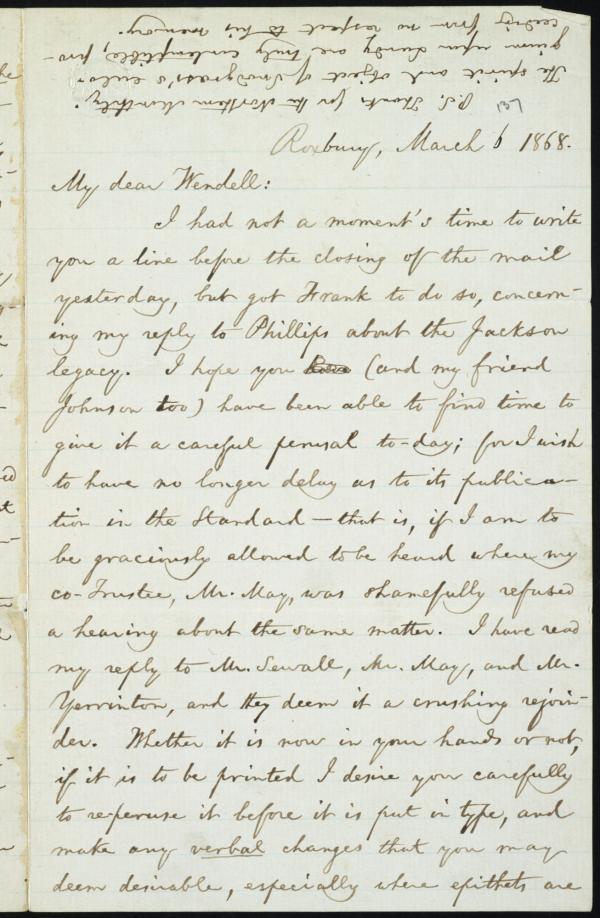 Roxbury, March 6 1868.
My dear Wendell:
I had not a moment's time to write
you a line before the closing of the mail
yesterday, but got Frank to do so, concern-
ing my reply to Phillips about the Jackson
legacy. I hope you have (and my friend
Johnson too) have been able to find time to
give it a careful perusal to-day; for I wish
to have no longer delay as to its publica-
tion in the Standard — that is, if I am to
be graciously allowed to be heard where my
co-Trustee, Mr. May, was shamefully refused
a hearing about the same matter. I have read
my reply to Mr. Sewall, Mr. May, and Mr.
Yerrinton, and they deem it a crushing rejoin-
der. Whether it is now in your hands or not,
if it is to be printed I desire you carefully
to re-peruse it before it is put in type, and
make any verbal changes that you may
deem desirable, especially where epithets are
P.S. Thanks for the Northern Monthly.
The spirit and object of Snodgrass's eulo-
gium upon Lundy are truly contemptible, pro-
ceeding from no respect to his memory.
137